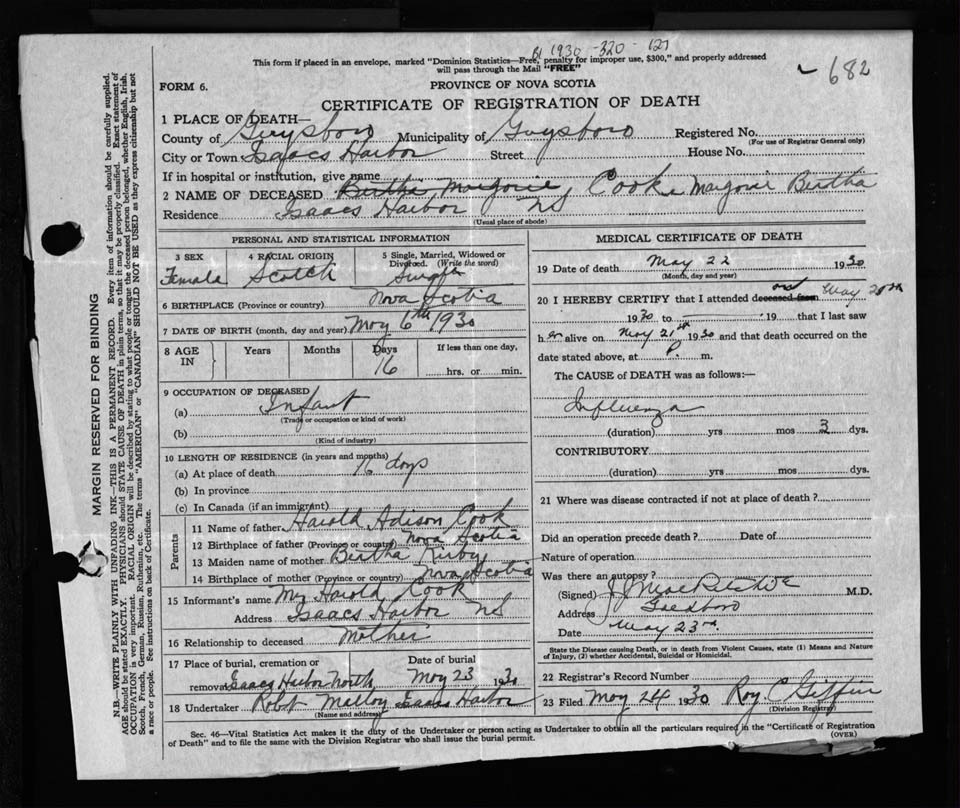 1930 - 320 - 127
This form if placed in an envelope, marked "Dominion Statistics—Free, penalty for improper use, $300," and properly addressed
will pass through the Mail "FREE"
682
FORM 6.
PROVINCE OF NOVA SCOTIA
CERTIFICATE OF REGISTRATION OF DEATH
1 PLACE OF DEATH—
County of Guysboro Municipality of Guysboro Registered No.
(For use of Registrar General only)
City or Town Isaacs Harbor Street House No.
If in hospital or institution, give name
2 NAME OF DECEASED Bertha Marjorie, Cook Marjorie Bertha
Residence Isaacs Harbor NS
(Usual place of abode)
PERSONAL AND STATISTICAL INFORMATION
3 SEX
Female
4 RACIAL ORIGIN
Scotch
5 Single, Married, Widowed or
Divorced. (Write the word)
Single
6 BIRTHPLACE (Province or country) Nova Scotia
7 DATE OF BIRTH (month, day and year) May 6th 1930
8 AGE
IN
Years
Months
Days
16
If less than one day,
hrs. or min.
9 OCCUPATION OF DECEASED
(a) Infant
(Trade or occupation or kind of work)
(b)
(Kind of industry)
10 LENGTH OF RESIDENCE (in years and months)
(a) At place of death 16 days
(b) In province
(c) In Canada (if an immigrant)
Parents
11 Name of father Harold Adison Cook
12 Birthplace of father (Province or country) Nova Scotia
13 Maiden name of mother Bertha Kirby
14 Birthplace of mother (Province or country) Nova Scotia
15 Informant's name Mrs Harold Cook
Address Isaacs Harbor NS
16 Relationship to deceased Mother
17 Place of burial, cremation or
removal Isaacs Harbor North
Date of burial
May 23 1930
18 Undertaker Robt Malloy Isaacs Harbor
(Name and address)
MEDICAL CERTIFICATE OF DEATH
19 Date of death May 22 1930
(Month, day and year)
20 I HEREBY CERTIFY that I attended deceased from and May 20th
1930 to 19 that I last saw
her alive on May 21st 1930 and that death occurred on the
date stated above, at P. m.
The CAUSE of DEATH was as follows:—
Influenza
(duration) yrs mos 3 dys.
CONTRIBUTORY
(duration) yrs mos dys.
21 Where was disease contracted if not at place of death?
Did an operation precede death? Date of
Nature of operation
Was there an autopsy?
(Signed) M.D.
Address Goldboro
Date May 23rd
State the Disease causing Death, or in death from Violent Causes, state (1) Means and Nature
of Injury, (2) whether Accidental, Suicidal or Homicidal.
22 Registrar's Record Number
23 Filed May 24 1930 Roy C Giffin
(Division Registrar)
Sec. 46—Vital Statistics Act makes it the duty of the Undertaker or person acting as Undertaker to obtain all the particulars required in the "Certificate of Registration
of Death" and to file the same with the Division Registrar who shall issue the burial permit.
(OVER)
MARGIN RESERVED FOR BINDING
N.B.—WRITE PLAINLY WITH UNFADING INK—THIS IS A PERMANENT RECORD. Every item of information should be carefully supplied.
AGE should be stated EXACTLY. PHYSICIANS should STATE CAUSE OF DEATH in plain terms, so that it may be properly classified. Exact statement of
OCCUPATION is very important. RACIAL ORIGIN will be described by stating to what people or tongue the deceased person belonged, whether English, Irish,
Scotch, French, German, Russian, Ruthenian, etc. The terms "AMERICAN" or "CANADIAN" SHOULD NOT BE USED as they express citizenship but not
a race or people. See instructions on back of Certificate.